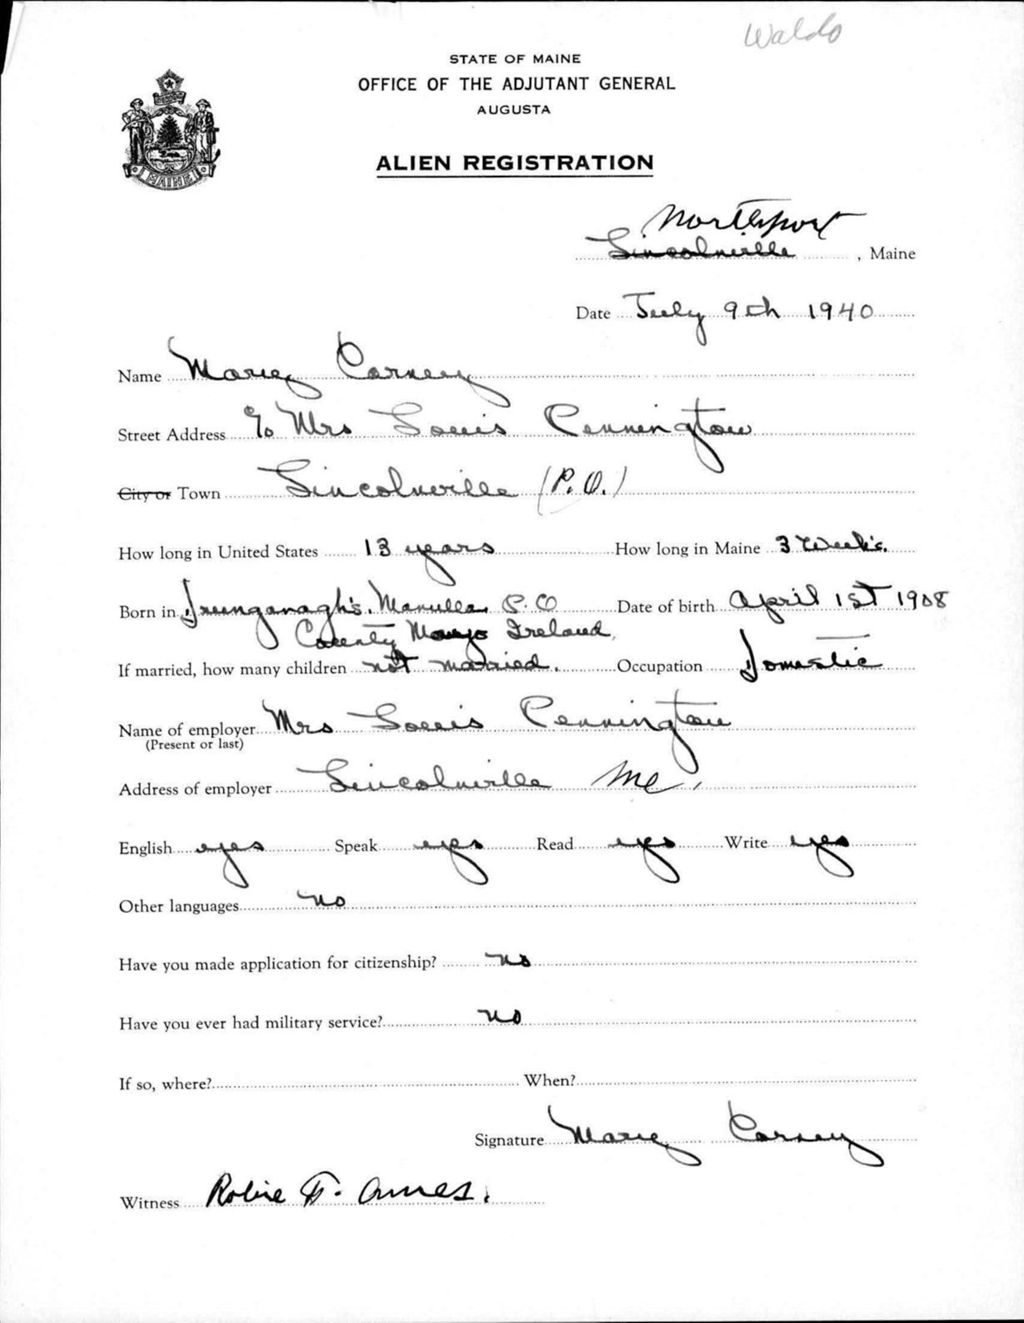 Waldo
STATE OF MAINE
OFFICE OF THE ADJUTANT GENERAL
AUGUSTA
MAINE
ALIEN REGISTRATION
Northport
Lincolnville , Maine
Date July 9th 1940
Name Mary Carney
Street Address c/o Mrs Louis Pennington
City or Town Lincolnville (P.O.)
How long in United States 13 years How long in Maine 3 Weeks.
Born in Manulla P.O Date of birth April 1st 1908
County Mayo Ireland,
If married, how many children not married. Occupation Domestic
Name of employer Mrs Louis Pennington
(Present or last)
Address of employer Lincolnville Me,
English yes Speak yes Read yes Write yes
Other languages no
Have you made application for citizenship? no
Have you ever had military service? no
If so, where? When?
Signature Mary Carney
Witness Robie F. Ames.